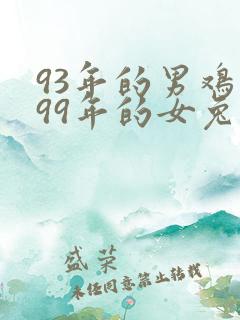 93年的男鸡
99年的女兔
盛荣
未经同意禁止转载